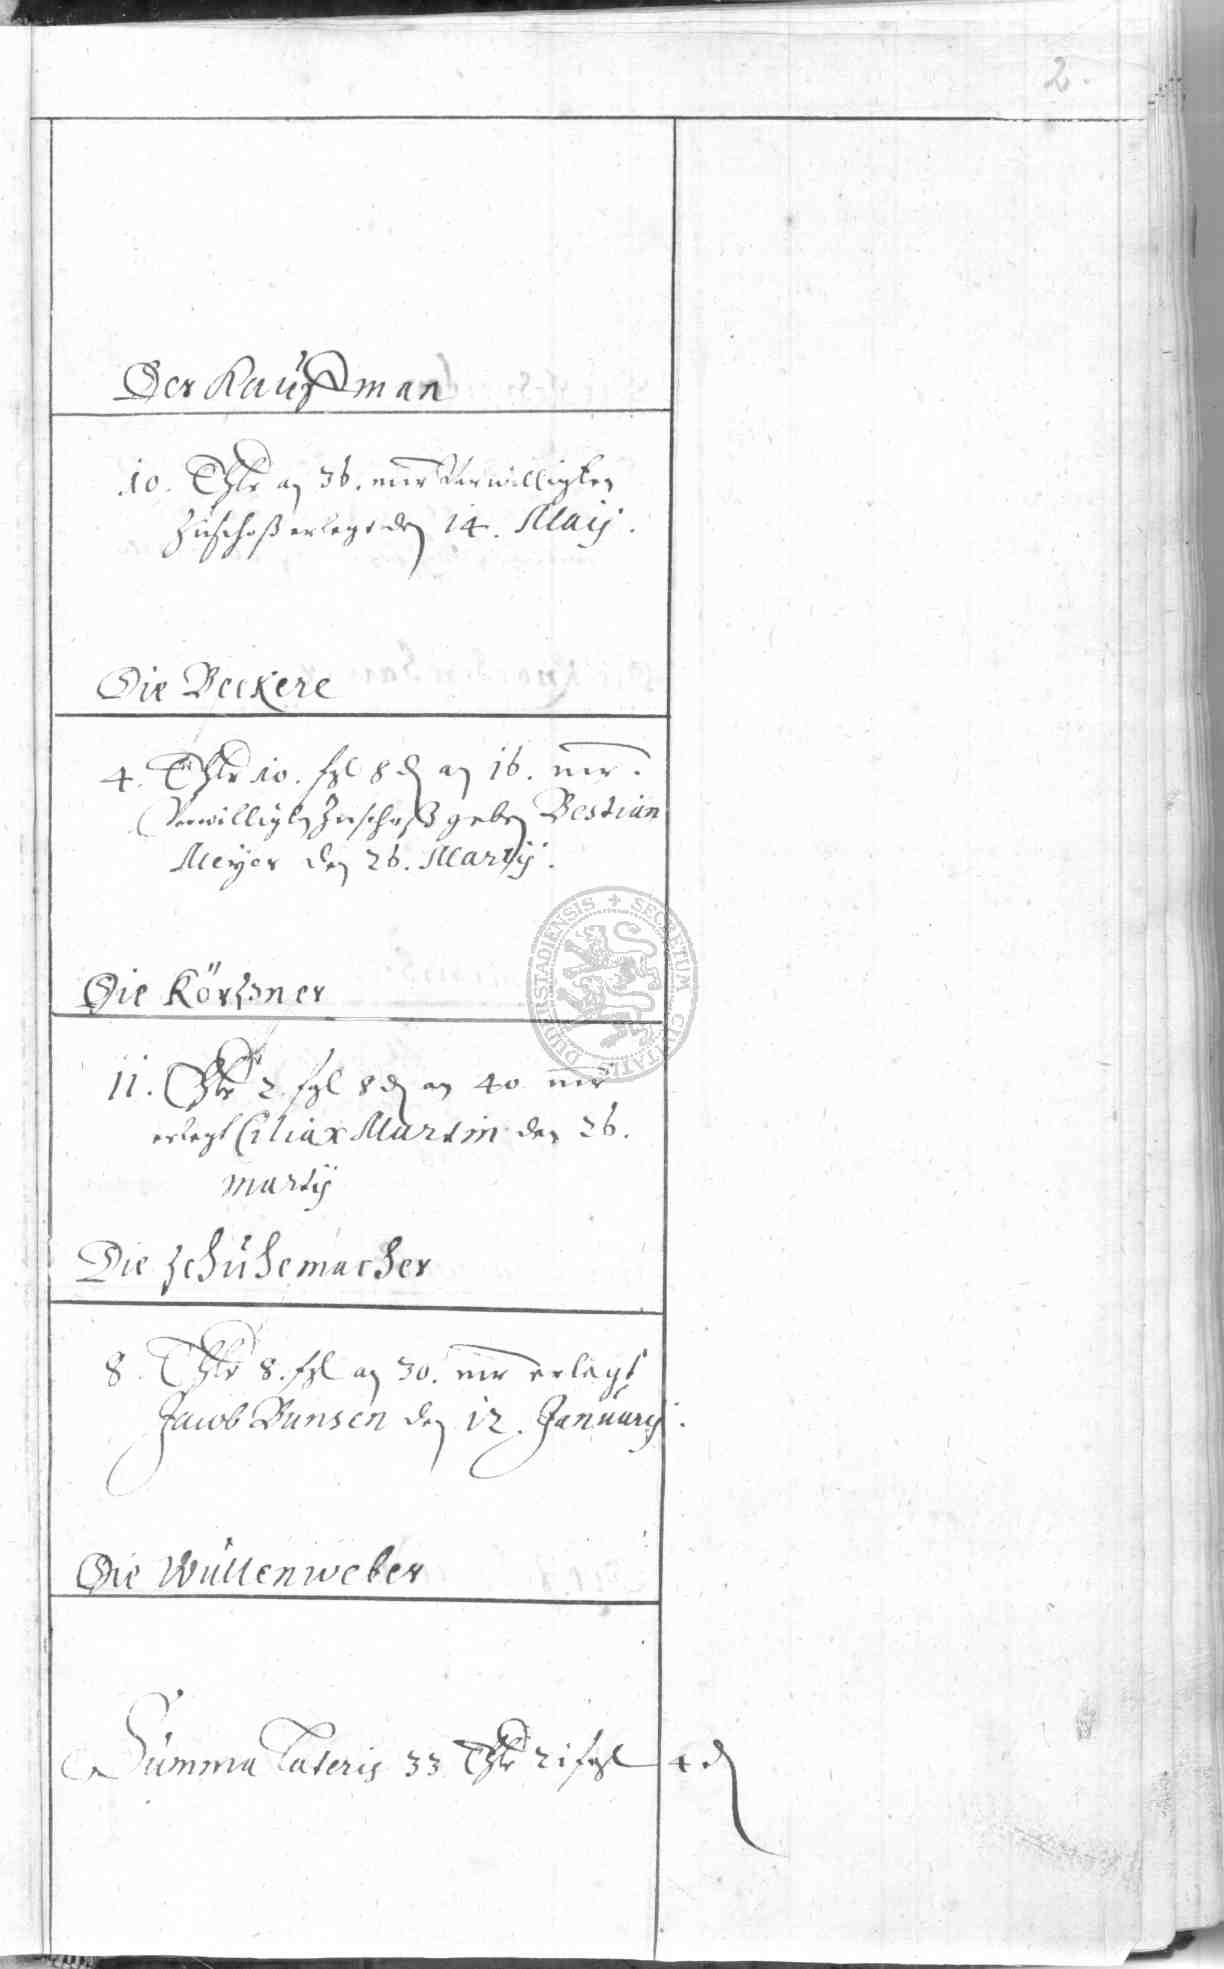 2.
Der Kauffman
10. Thlr an 36. mr verwilligten
Zuschoß erlegt den 14. Maij.
Die Beckere
4. Thlr 10. sgl 8 d an 16. mr.
Verwilligten Zuschoß geben Bestian
Meyer den 26. Martij.
Die Körßner
11. Thlr 2 sgl 8 d an 40 mr
erlegt Ciliax Martin den 26.
Martij
Die Schuhemacher
8. Thlr 8. sgl an 30. mr erlegt
Jacob Bunsen den 12. Januarij.
Die Wullenweber
Summa Lateris 33 Thlr 21 sgl 4 d
SECRETUM CIVITATIS DUDERSTADIENSIS